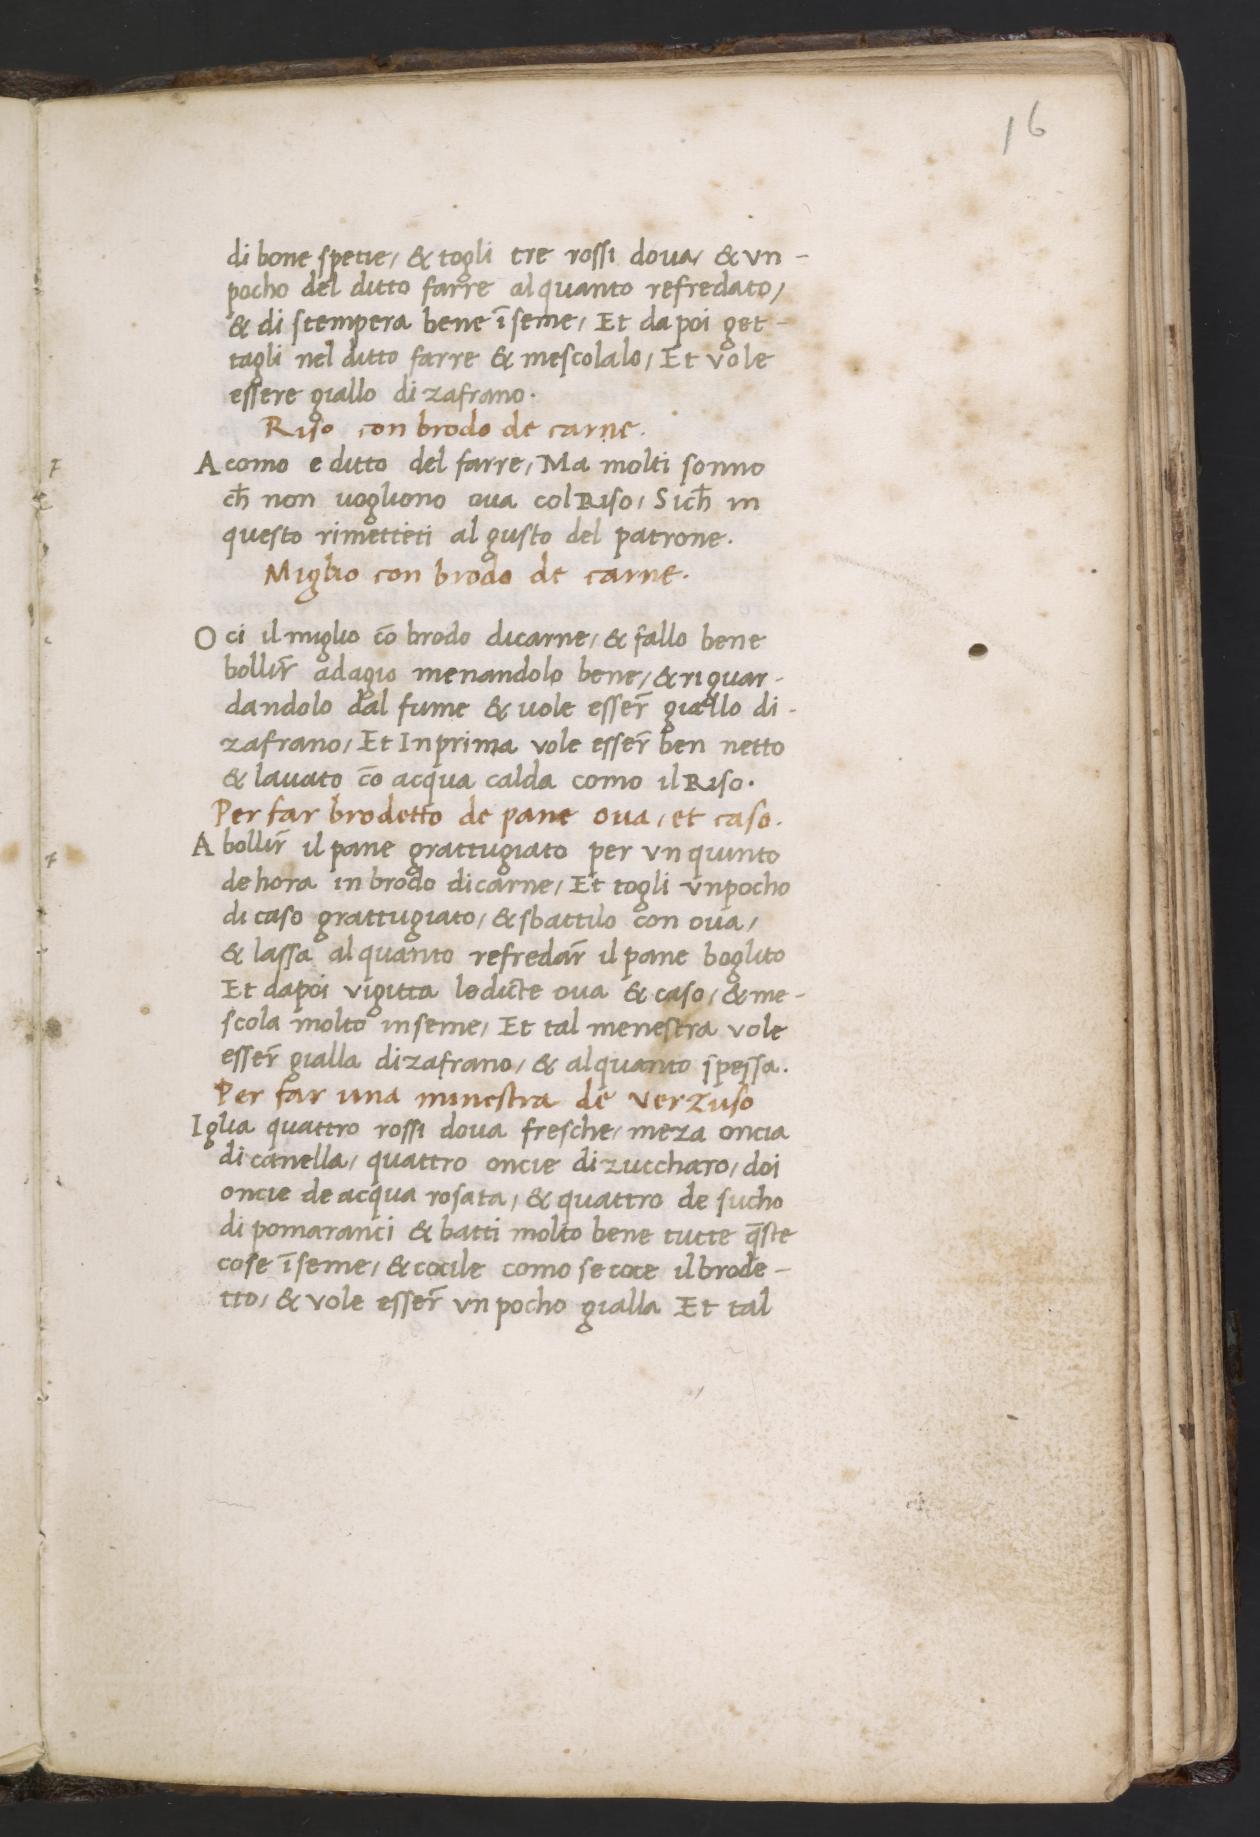 16
di bone spetie, & togli tre rossi dova, & vn -
pocho del ditto farre alquanto refredato,
& di stempera bene ī seme, Et da poi get -
tagli nel ditto farre & mescolalo, Et vole
essere giallo di zafrano.
Riso con brodo de carne.
A como e ditto del farre, Ma molti sonno
ch̄ non uogliono oua col Riso, Sich̄ in
questo rimetteti al gusto del patrone.
Miglio con brodo de carne.
O ci il miglio cō brodo dicarne, & fallo bene
bollir̄ adagio menandolo bene, & riguar -
dandolo dal fume & uole esser̄ giallo di -
zafrano, Et Inprima vole esser̄ ben netto
& lauato cō acqua calda como il Riso.
Per far brodetto de pane oua, et caso.
A bollir̄ il pane grattugiato per vn quinto
de hora in brodo di carne, Et togli vnpocho
di caso grattugiato, & sbattilo con oua,
& lassa alquanto refredar̄ il pane boglito
Et dapoi vigitta le dicte oua & caso, & me -
scola molto inseme, Et tal menestra vole
esser̄ gialla di zafrano, & alquanto spessa.
Per far una minestra de verzuso
I glia quattro rossi dova fresche, meza oncia
di canella, quattro oncie di zuccharo, doi
oncie de acqua rosata, & quattro de sucho
di pomaranci & batti molto bene tutte q̄ste
cose ī seme, & cocile como se coce il brode -
tto, & vole esser̄ vn pocho gialla Et tal